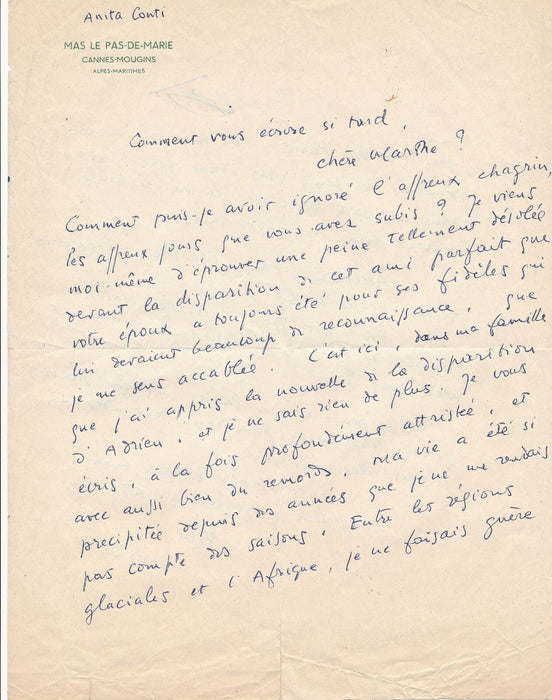 Anita Conti
MAS LE PAS-DE-MARIE
CANNES-MOUGINS
ALPES-MARITIMES
Comment vous écrire si tard,
chère Marthe ?
Comment puis-je avoir ignoré l'affreux chagrin,
les affreux jours que vous avez subis ? Je viens
moi-même d'éprouver une peine tellement désolée
devant la disparition de cet ami parfait que
votre époux a toujours été pour ses fidèles qui
lui devaient beaucoup de reconnaissance, que
je me sens accablée. C'est ici, dans ma famille
que j'ai appris la nouvelle de la disparition
d'Adrien, et je ne sais rien de plus. Je vous
écris, à la fois profondément attristée, et
avec aussi bien du remords. Ma vie a été si
précipitée depuis des années que je ne me rendais
pas compte des saisons. Entre les régions
glaciales et l'Afrique, je ne faisais guère